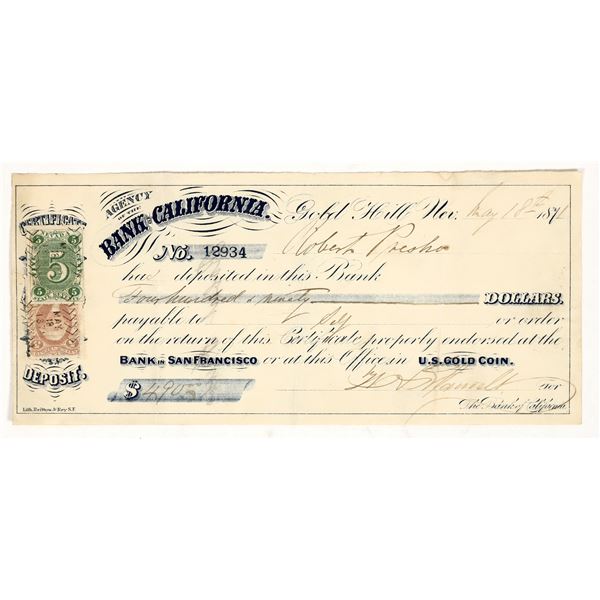 CERTIFICATE
5 5
5
5 5
DEPOSIT.
AGENCY
OF THE
BANK OF CALIFORNIA.
Gold Hill Nev. May 18th 1871
No. 12934 Robert Presho
has deposited in this Bank
Four hundred & ninety DOLLARS,
payable to Self or order
on the return of this Certificate properly endorsed at the
BANK IN SAN FRANCISCO or at this Office, in U.S. GOLD COIN.
$ 490
The Bank of California.
Lith. Britton & Rey S.F.